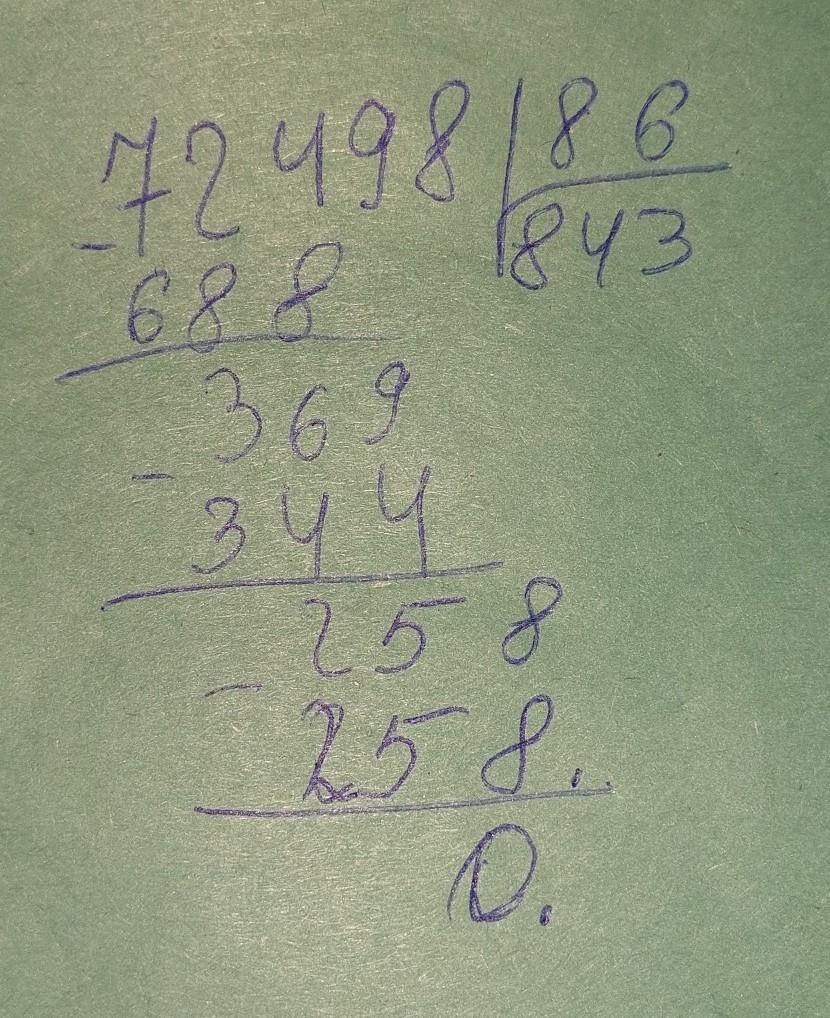 72498 | 86
843
- 688
369
- 344
258
- 258..
0.